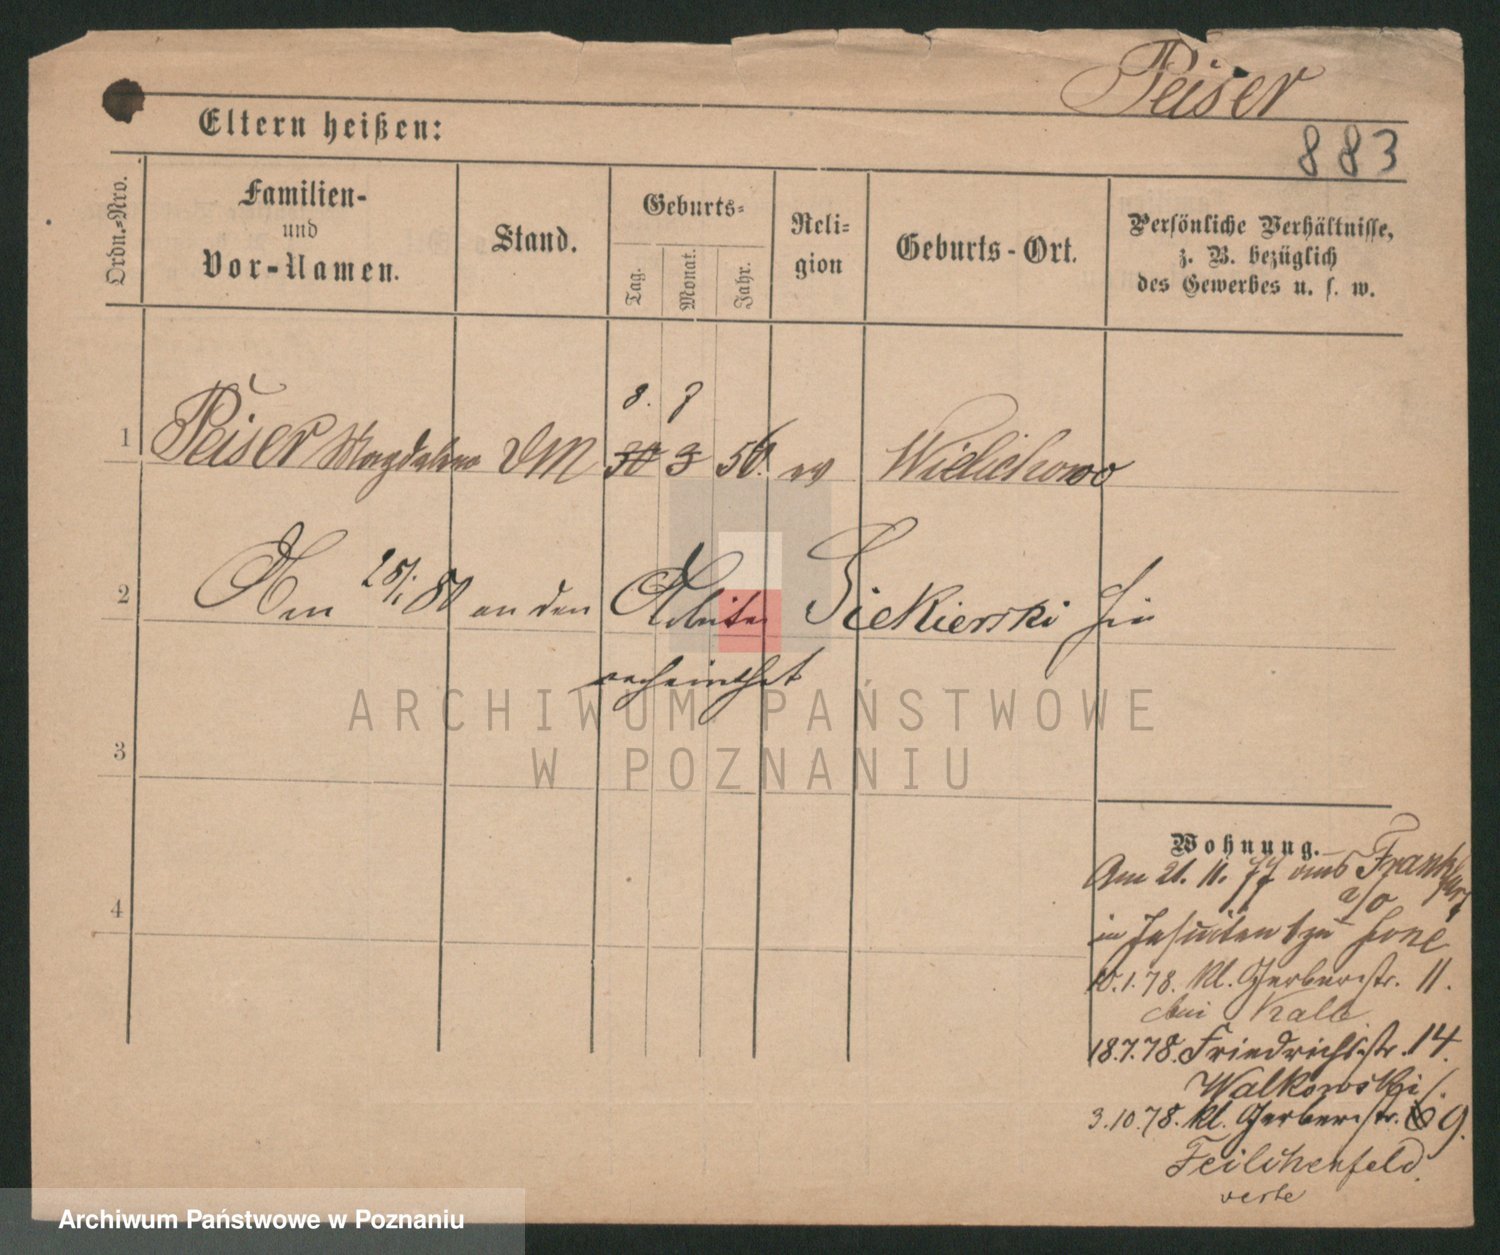 Peiser
883
Eltern heißen:
Ordn.-Nro.
Familien-
und
Vor-Namen.
Stand.
Geburts-
Tag.
Monat.
Jahr.
Reli-
gion
Geburts-Ort.
Persönliche Verhältnisse,
z. B. bezüglich
des Gewerbes u. s. w.
8. 7
1 Peiser Magdalena DM 30 3 56. ev Wielichowo
2 Am 28/1 80 an den Arbeiter Siekierski hier
verheirathet
3
4
Wohnung.
Am 21. 11. 77 aus Frankfurt
a/O
in Jesuitenstr
10.1.78. kl. Gerberstr. 11.
bei Kalb
18.7.78. Friedrichstr. 14.
Walkowski
3.10.78. kl. Gerberstr. 9.
Feilchenfeld.
verte
ARCHIWUM PAŃSTWOWE
W POZNANIU
Archiwum Państwowe w Poznaniu